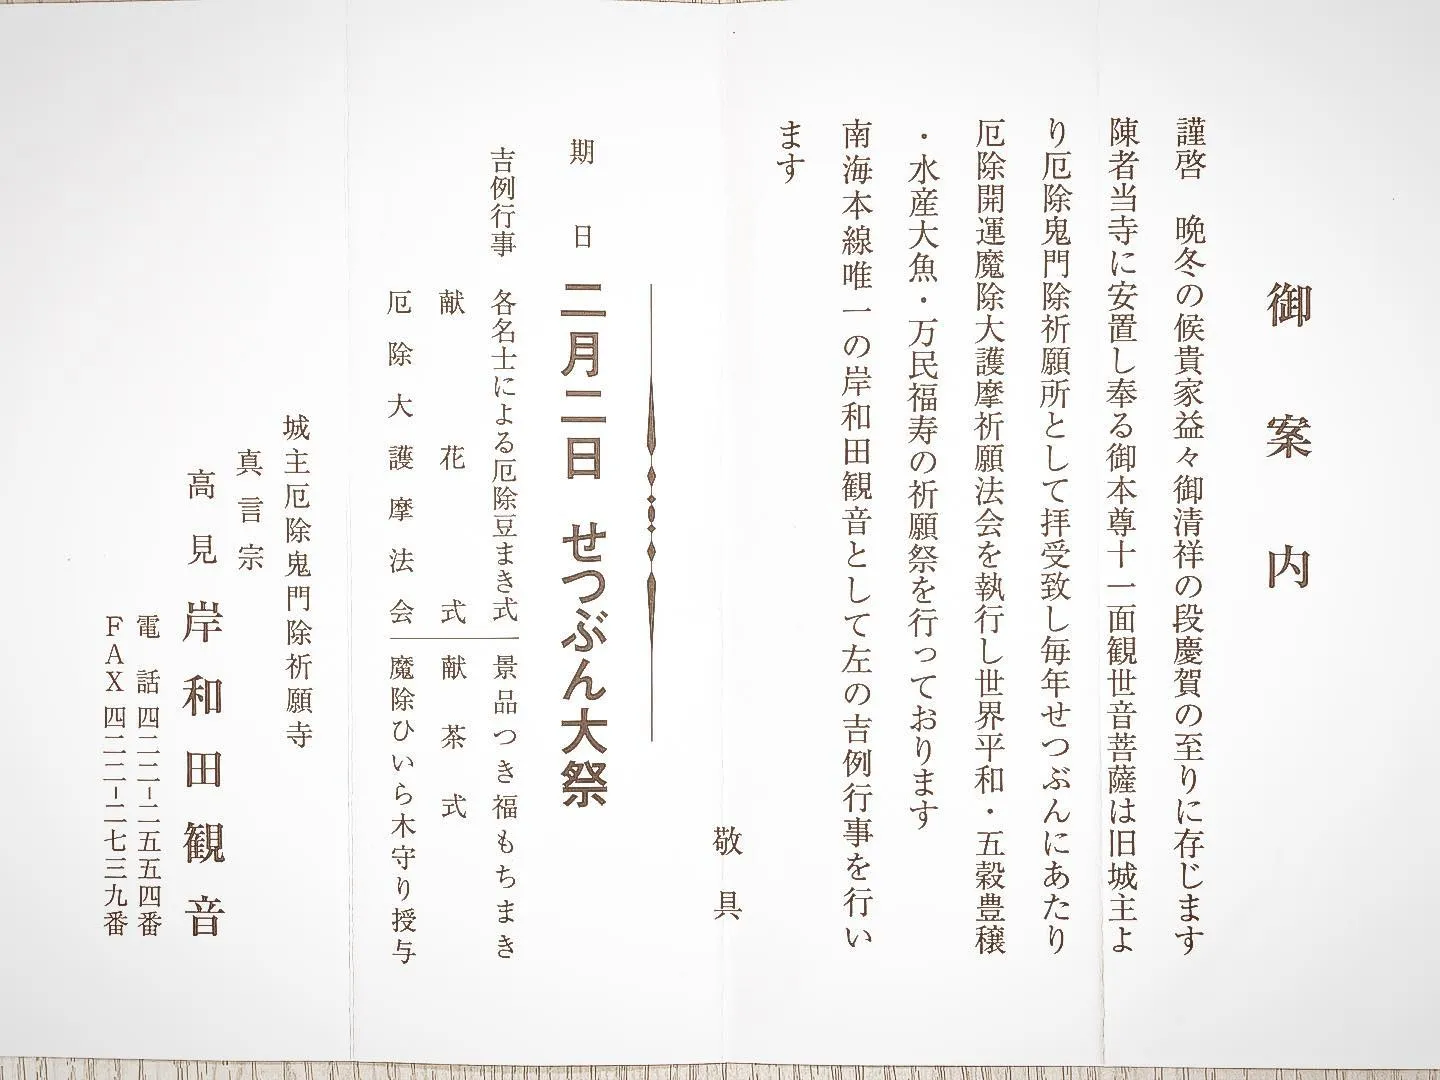 御案内
謹啓　晩冬の候貴家益々御清祥の段慶賀の至りに存じます
陳者当寺に安置し奉る御本尊十一面観世音菩薩は旧城主よ
り厄除鬼門除祈願所として拝受致し毎年せつぶんにあたり
厄除開運魔除大護摩祈願法会を執行し世界平和・五穀豊穣
・水産大魚・万民福寿の祈願祭を行っております
南海本線唯一の岸和田観音として左の吉例行事を行い
ます
敬具
期日　二月二日　せつぶん大祭
吉例行事　各名士による厄除豆まき式　景品つき福もちまき
献花式　献茶式
厄除大護摩法会　魔除ひいら木守り授与
城主厄除鬼門除祈願寺
真言宗
高見　岸和田観音
電話　四二二-二五五四番
FAX　四二二-二七三九番